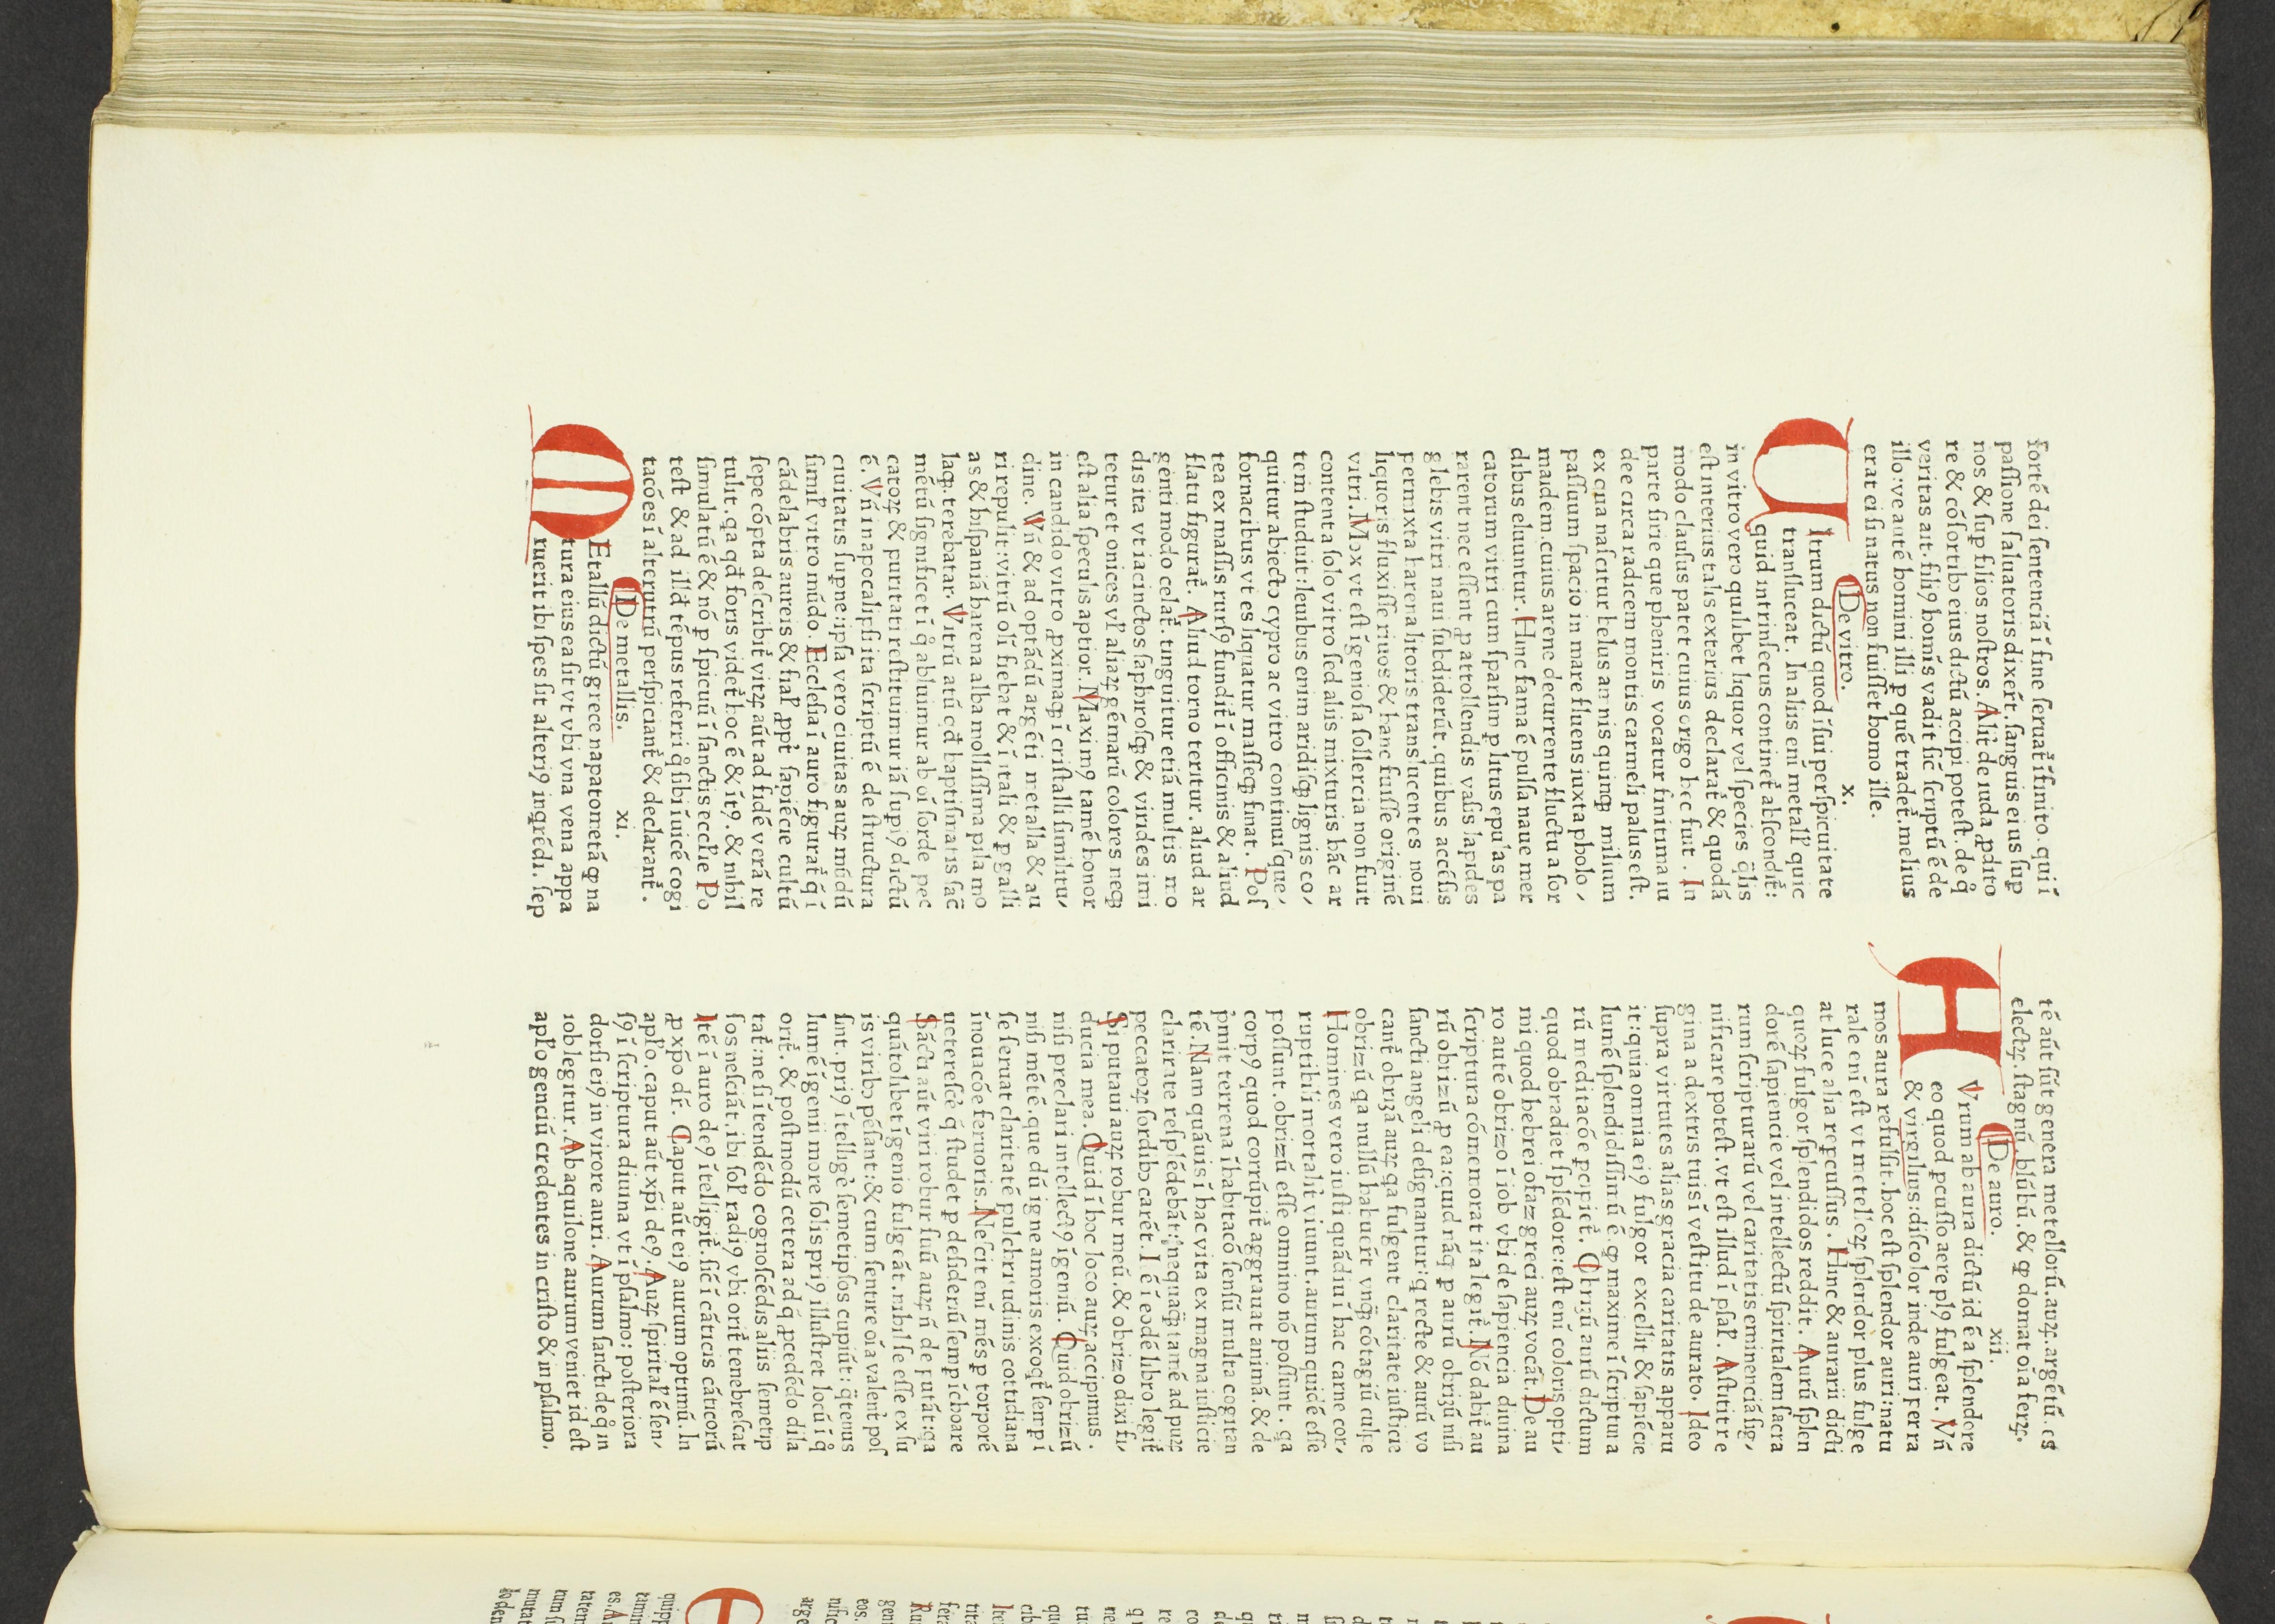 forté dei sentenciā ī fine seruat̄ īfinito. qui ī
passione saluatoris dixer̄t. sanguis eius sup̱
nos & sup̱ filios nostros. Alit̄ de iuda p̱dito
re & cōsortibꝫ eius dictū accipi potest. de q̊
veritas ait. filiꝰ homīs vadit sic̄ scriptū ē de
illo: ve autē homini illi p̱ quē tradet̄. melius
erat ei si natus non fuisset homo ille.
De vitro. x.
Uitrum dictū quod ī sui perspicuitate
transluceat. In aliis enī metall' quic
quid intrinsecus continet̄ abscondit̄:
in vitro vero quilibet liquor vel species q̄lis
est interius talis exterius declarat̄ & quodā
modo clausus patet cuius origo hec fuit. In
parte sirie que phenicis vocatur finitima iu
dee circa radicem montis carmeli palus est.
ex cua nascitur belus amnis quinqꝫ milium
passuum spacio in mare fluens iuxta pholo,
maidem. cuius arene decurrente fluctu a sor
dibus eluuntur. Hinc fama ē pulsa naue mer
catorum vitri cum sparsim p̱ litus epulas pa
rarent nec essent p̱ attollendis vasis lapides
glebis vitri naui subdiderūt. quibus accēsis
permixta harena litoris translucentes noui
liquoris fluxisse riuos & hanc fuisse originē
vitri. Mox vt est īgeniosa sollercia non fuit
contenta solo vitro sed aliis mixturis hāc ar
tem studuit: leuibus enim aridisqꝫ lignis co,
quitur abiecto cypro ac vitro continuisque,
fornacibus vt es liquatur masseqꝫ fiunt. Pos
tea ex massis rursꝰ fundit̄ ī officinis & aliud
flatu figurat̄. Aliud torno teritur. aliud ar
genti modo celat̄. tinguitur etiā multis mo
dis ita vt iacinctos saphirosqꝫ & virides imi
tetur et onices vl' aliaꝝ gēmarū colores neqꝫ
est alia speculis aptior. Maximꝰ tamē honor
in candido vitro p̱ximaqꝫ ī cristalli similitu,
dine. Vn̄ & ad optādū argēti metalla & au
ri repulit: vitrū olī fiebat & ī itali & p̱ galli
as & hispaniā harena alba mollissima pila mo
laqꝫ terebatar. Vitrū atū qd̄ baptismatis sac̄
mētū significet ī q̊ abluimur ab oī sorde pec
catoꝝ & puritati restituimur iā supiꝰ dictū
ē. Vn̄ in apocalipsi ita scriptū ē de structura
ciuitatis supne: ipsa vero ciuitas auꝝ mūdū
simil' vitro mūdo. Ecclesia ī auro figurat̄ q̄ ī
cādelabris aureis & fial' p̱pt̄ sapiēcie cultū
sepe cōpta describit̄ vitꝝ aūt ad fidē verā re
tulit. qa qd̄ foris videt̄ hoc ē & ītꝰ. & nihil
simulatū ē & nō p̱spicuū ī sanctis eccl'ie Po
test & ad illd̄ tēpus referri q̊ sibi īuicē cogi
tacōes ī alterutrū perspiciant̄ & declarant̄.
De metallis. xi.
METallū dictū grece napatometā qꝫ na
tura eius ea sit vt vbi vna vena appa
ruerit ibi spes sit alteriꝰ inqrēdi. sep
tē aūt sūt genera metellorū. auꝝ. argētū. es
electꝝ. stagnū. blūbū. & qꝫ domat oīa ferꝝ.
De auro. xii.
HAurum ab aura dictū id ē a splendore
eo quod p̱cusso aere plꝰ fulgeat. Vn̄
& virgilius: discolor inde auri perra
mos aura refulsit. hoc est splendor auri: natu
rale enī est vt metelloꝝ splendor plus fulge
at luce alia rep̱cussus. Hinc & aurarii dicti
quoꝝ fulgor splendidos reddit. Aurū splen
dorē sapiencie vel intellectū spiritalem sacra
rum scripturarū vel caritatis eminenciā sig,
nificare potest. vt est illud ī psal'. Astitit re
gina a dextris tuis ī vestitu de aurato. Ideo
supra virtutes alias gracia caritatis apparu
it: quia omnia eiꝰ fulgor excellit & sapiēcie
lumē splendidissimū ē. qꝫ maxime ī scriptura
rū meditacōe p̱cipiet̄. Obrizū aurū dictum
quod obradiet splēdore: est enī coloris opti,
mi quod hebrei ofaz greci auꝝ vocāt. De au
ro autē obrizo ī iob vbi de sapiencia diuina
scriptura cōmemorat ita legit̄. Nō dabit̄ au
rū obrizū p̱ ea: quid nāqꝫ p̱ aurū obrizū nisi
sancti angeli designantur: q recte & aurū vo
cant̄ obrizā auꝝ qa fulgent claritate iusticie
obrizū qa nullū habuer̄t vnqꝫ cōtagiū culpe
Homines vero iusti quādiu ī hac carne cor,
ruptibili mortalit̄ viuunt. aurum quidē esse
possunt. obrizū esse omnino nō possunt. qa
corpꝰ quod corrūpit̄ aggrauat animā. & de
p̱mit terrena īhabitacō sensū multa cogitan
tē. Nam quāuis ī hac vita ex magna iusticie
claritate resplēdebāt: nequaqꝫ tamē ad puꝝ
peccatoꝝ sordibꝫ carēt. Iē ī eodē libro legit̄
Si putaui auꝝ robur meū. & obrizo dixi fi,
ducia mea. Quid ī hoc loco auꝝ accipimus.
nisi preclari intellectꝰ īgeniū. Quid obrizū
nisi mētē. que dū igne amoris excoqt̄ semp̱ ī
se seruat claritatē pulchritudinis cottidiana
īnouacōe feruoris. Nescit enī mēs p̱ torporē
ueterescē q̄ studet p̱ desideriū semp̱ ichoare
Sācti aūt viri robur suū auꝝ n̄ de putāt: qa
quātolibet īgenio fulgeāt. nihil se esse ex su
is viribꝫ pēsant: & cum sentire oīa valent̄ pos
sint. priꝰ ītelligē semetipsos cupiūt: q̄tenus
lumē īgenii more solis priꝰ illustret locū ī q̊
orit̄. & postmodū cetera ad q̄ p̱cedēdo dila
tat̄: ne si ītendēdo cognoscēdis aliis semetip̱
sos nesciāt. ibi sol' radiꝰ vbi orit̄ tenebrescat
Itē ī auro deꝰ ītelligit̄. sic̄ ī cāticis cāticorū
p̱ xp̄o dr̄. Caput aūt eiꝰ aurum optimū. In
apl'o. caput aūt xp̄i deꝰ. Auꝝ spirital' ē sen,
sꝰ ī scriptura diuina vt ī psalmo: posteriora
dorsi eiꝰ in virore auri. Aurum sancti: de q̊ in
iob legitur. Ab aquilone aurum veniet id est
apl'o genciū credentes in cristo & in psalmo.